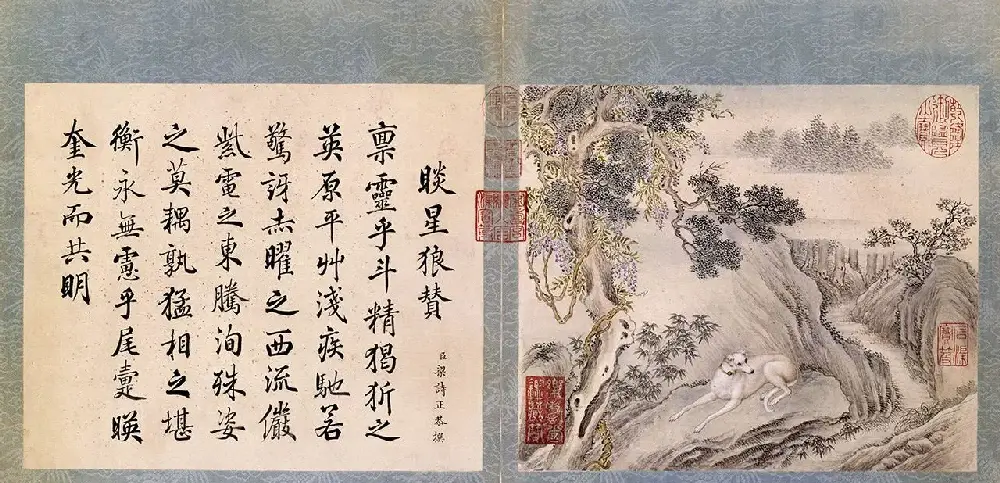 睒星狼贊
臣梁詩正恭撰
稟靈乎斗精猲之
英原平艸淺疾馳若
驚訝赤曜之西流儼
紫電之東騰洵殊姿
之莫耦孰猛相之堪
衡永無慮乎尾疐暎
奎光而共明